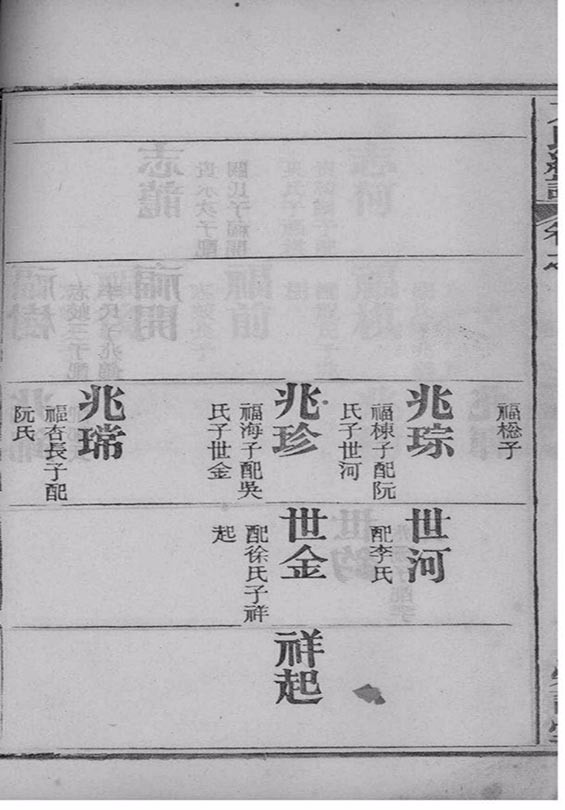 福棇子
兆琮
福棟子配阮
氏子世河
兆珍
福海子配吳
氏子世金
兆瑺
福杏長子配
阮氏
世河
配李氏
世金
配徐氏子祥
起
祥起